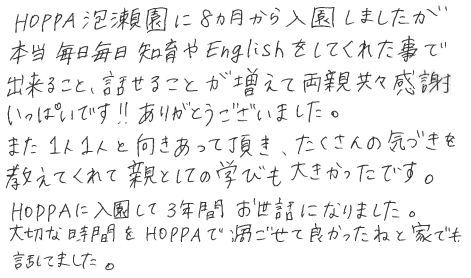 HOPPA泡瀬園に8ヵ月から入園しましたが
本当毎日毎日知育やEnglishをしてくれた事で
出来ること、話せることが増えて両親共々感謝
いっぱいです!!ありがとうございました。
また1人1人と向きあって頂き、たくさんの気づきを
教えてくれて親としての学びも大きかったです。
HOPPAに入園して3年間お世話になりました。
大切な時間をHOPPAで過ごせて良かったねと家でも
話してました。